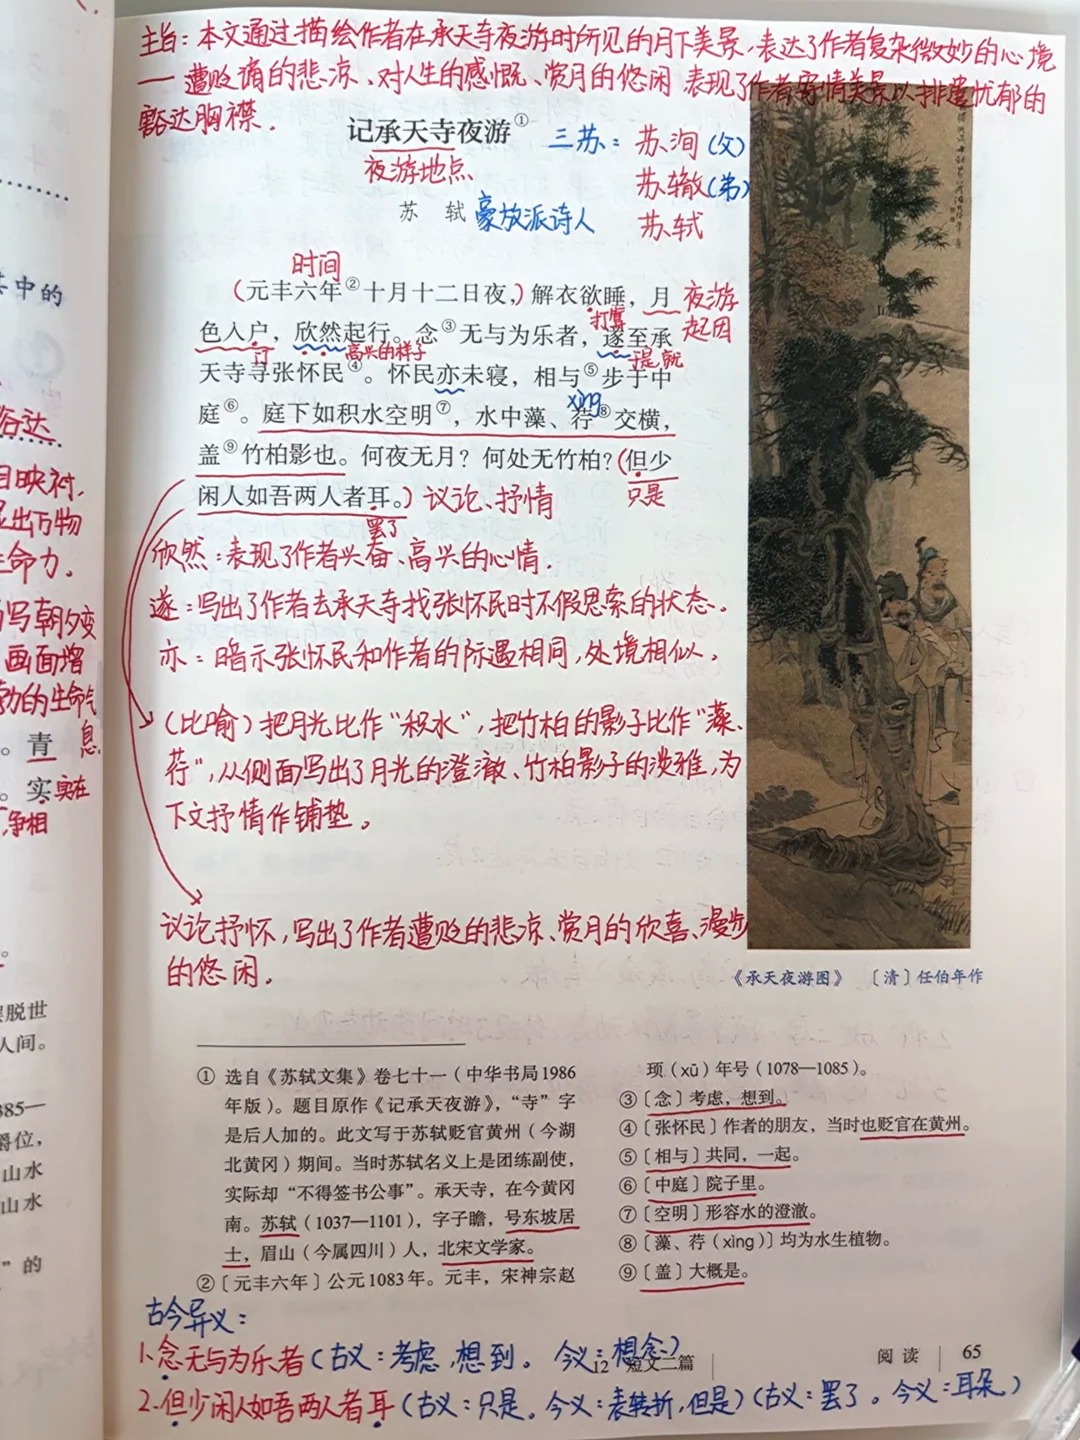 主旨：本文通过描绘作者在承天寺夜游时所见的月下美景，表达了作者复杂微妙的心境
——遭贬谪的悲凉、对人生的感慨、赏月的悠闲 表现了作者寄情美景以排遣忧郁的
豁达胸襟．
记承天寺夜游①
夜游地点
苏 轼 豪放派诗人
三苏：苏洵（父）
苏辙（弟）
苏轼
时间
（元丰六年②十月十二日夜，）解衣欲睡，月
夜游
起因
打算
色入户，欣然起行。念③无与为乐者，遂至承
门
高兴的样子
于是，就
天寺寻张怀民④。怀民亦未寝，相与⑤步于中
xìng
庭⑥。庭下如积水空明⑦，水中藻、荇⑧交横，
盖⑨竹柏影也。何夜无月？何处无竹柏？（但少
只是
闲人如吾两人者耳。）议论、抒情
罢了
欣然：表现了作者兴奋、高兴的心情．
遂：写出了作者去承天寺找张怀民时不假思索的状态．
亦：暗示张怀民和作者的际遇相同，处境相似．
（比喻）把月光比作“积水”，把竹柏的影子比作“藻、
荇”，从侧面写出了月光的澄澈、竹柏影子的淡雅，为
下文抒情作铺垫。
议论抒怀，写出了作者遭贬的悲凉、赏月的欣喜、漫步
的悠闲．
《承天夜游图》 〔清〕任伯年作
① 选自《苏轼文集》卷七十一（中华书局1986
年版）。题目原作《记承天夜游》，“寺”字
是后人加的。此文写于苏轼贬官黄州（今湖
北黄冈）期间。当时苏轼名义上是团练副使，
实际却“不得签书公事”。承天寺，在今黄冈
南。苏轼（1037—1101），字子瞻，号东坡居
士，眉山（今属四川）人，北宋文学家。
②〔元丰六年〕公元1083年。元丰，宋神宗赵
顼（xū）年号（1078—1085）。
③〔念〕考虑，想到。
④〔张怀民〕作者的朋友，当时也贬官在黄州。
⑤〔相与〕共同，一起。
⑥〔中庭〕院子里。
⑦〔空明〕形容水的澄澈。
⑧〔藻、荇（xìng）〕均为水生植物。
⑨〔盖〕大概是。
古今异义：
1.念无与为乐者（古义：考虑，想到。今义：想念）
12 短文二篇 阅读 65
2.但少闲人如吾两人者耳（古义：只是。今义：表转折，但是）（古义：罢了。今义：耳朵．）
其中的
谷达
目映衬，
显出万物
生命力．
写朝夕变
画面增
勃的生命气
息
。青
。实 实在
争相
摆脱世
人间。
385—
爵位，
山水
山水
”的